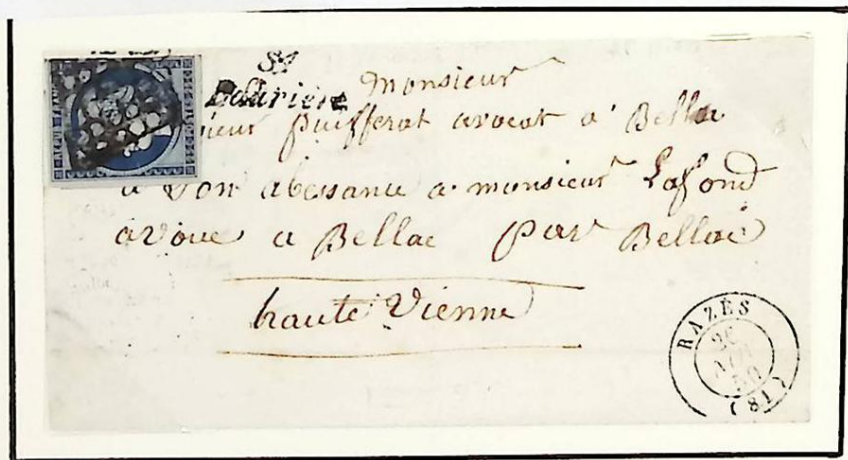 81
Laurière
Monsieur
ieur puifferat avocat a Bella
a son absance a monsieur Lafond
avoue a Bellac par Bellac
haute Vienne
RAZÈS
50
(81)